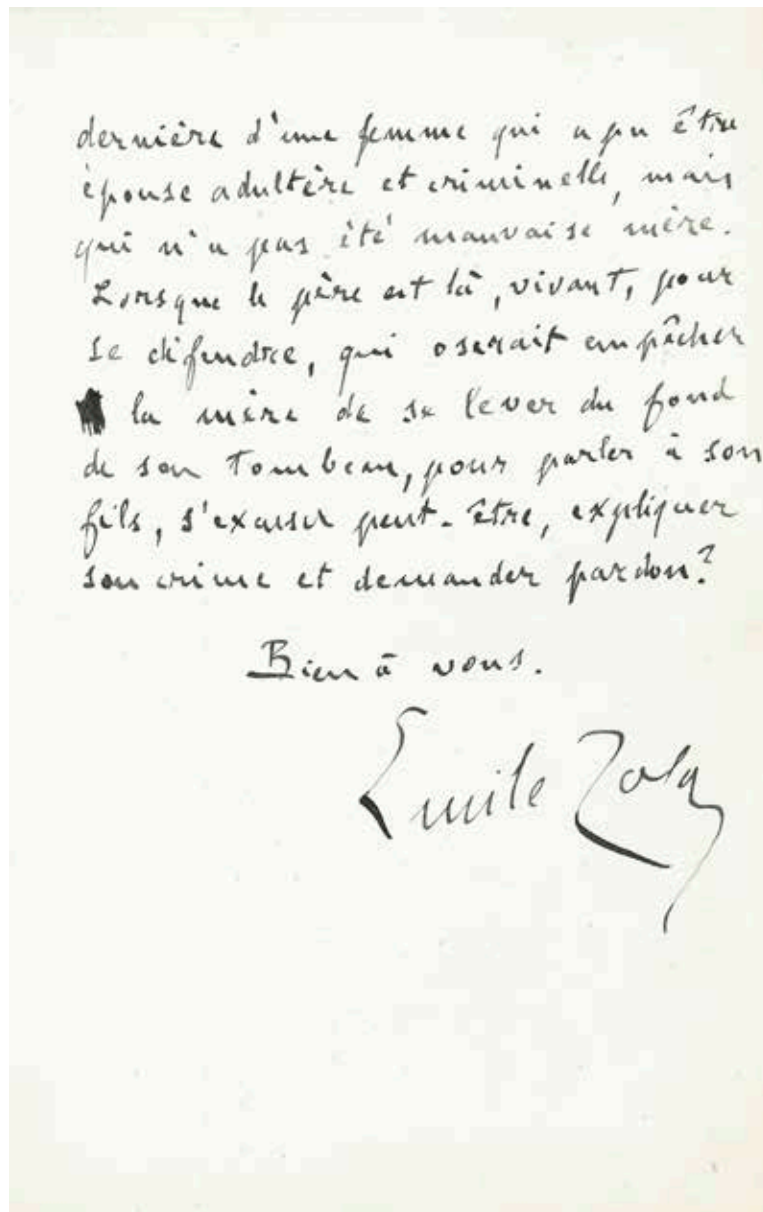 dernière d'une femme qui a pu être
épouse adultère et criminelle, mais
qui n'a pas été mauvaise mère.
Lorsque le père est là, vivant, pour
se défendre, qui oserait empêcher
la mère de se lever du fond
de son tombeau, pour parler à son
fils, s'excuser peut-être, expliquer
son crime et demander pardon?
Bien à vous.
Emile Zola